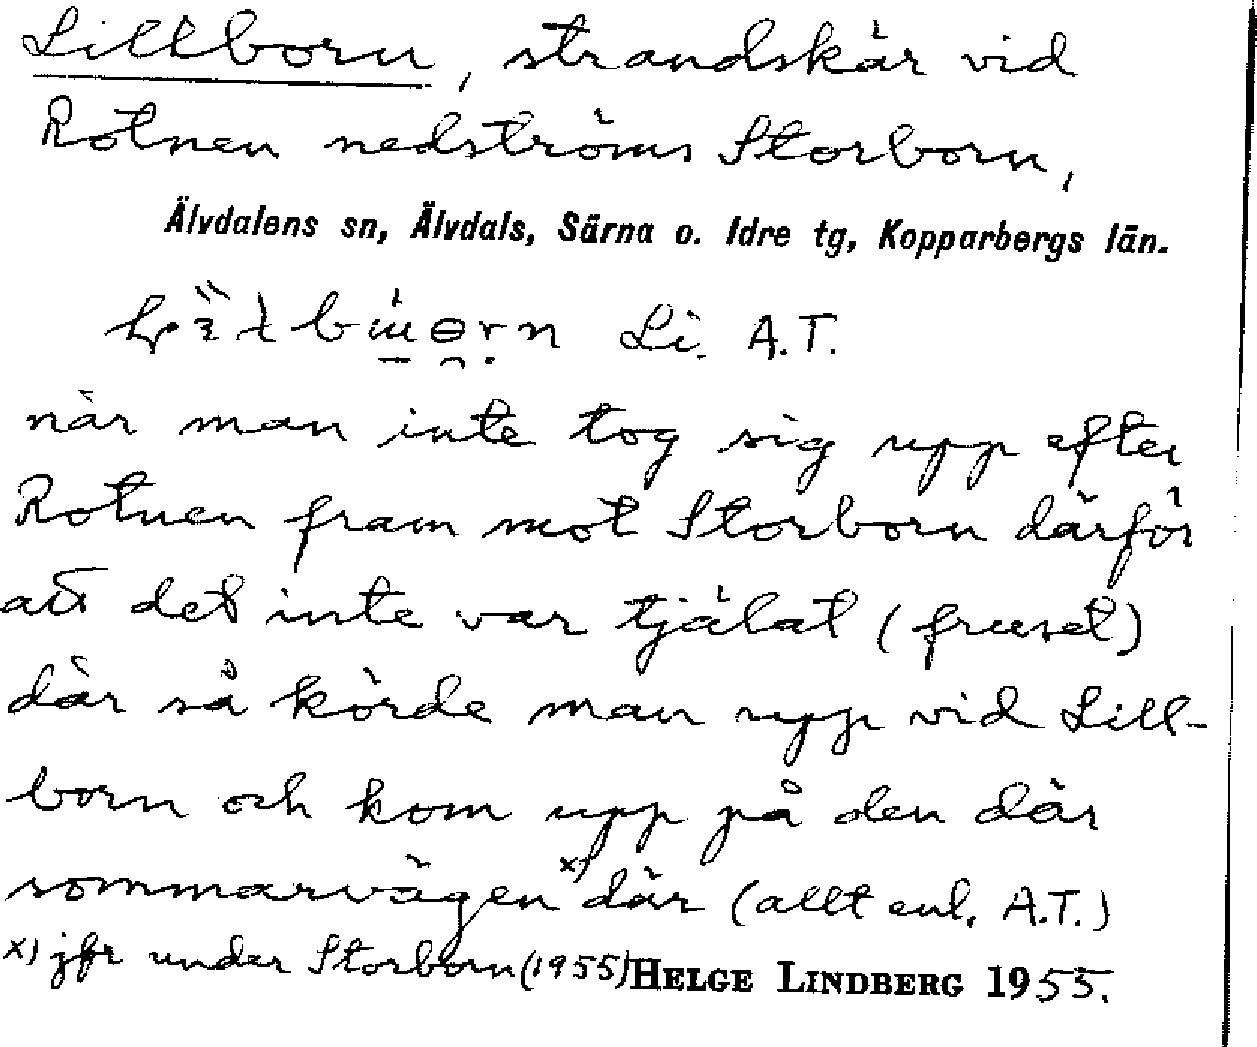 Lillborn, strandskär vid
Rotnen nedströms Storborn,
Älvdalens sn, Älvdals, Särna o. Idre tg, Kopparbergs län.
Li. A.T.
när man inte tog sig upp efter
Rotnen fram mot Storborn därför
att det inte var tjälat (fruset)
där så körde man upp vid Lill-
born och kom upp på den där
sommarvägen x) där (allt enl. A.T.)
x) jfr under Storborn (1955) HELGE LINDBERG 1955.